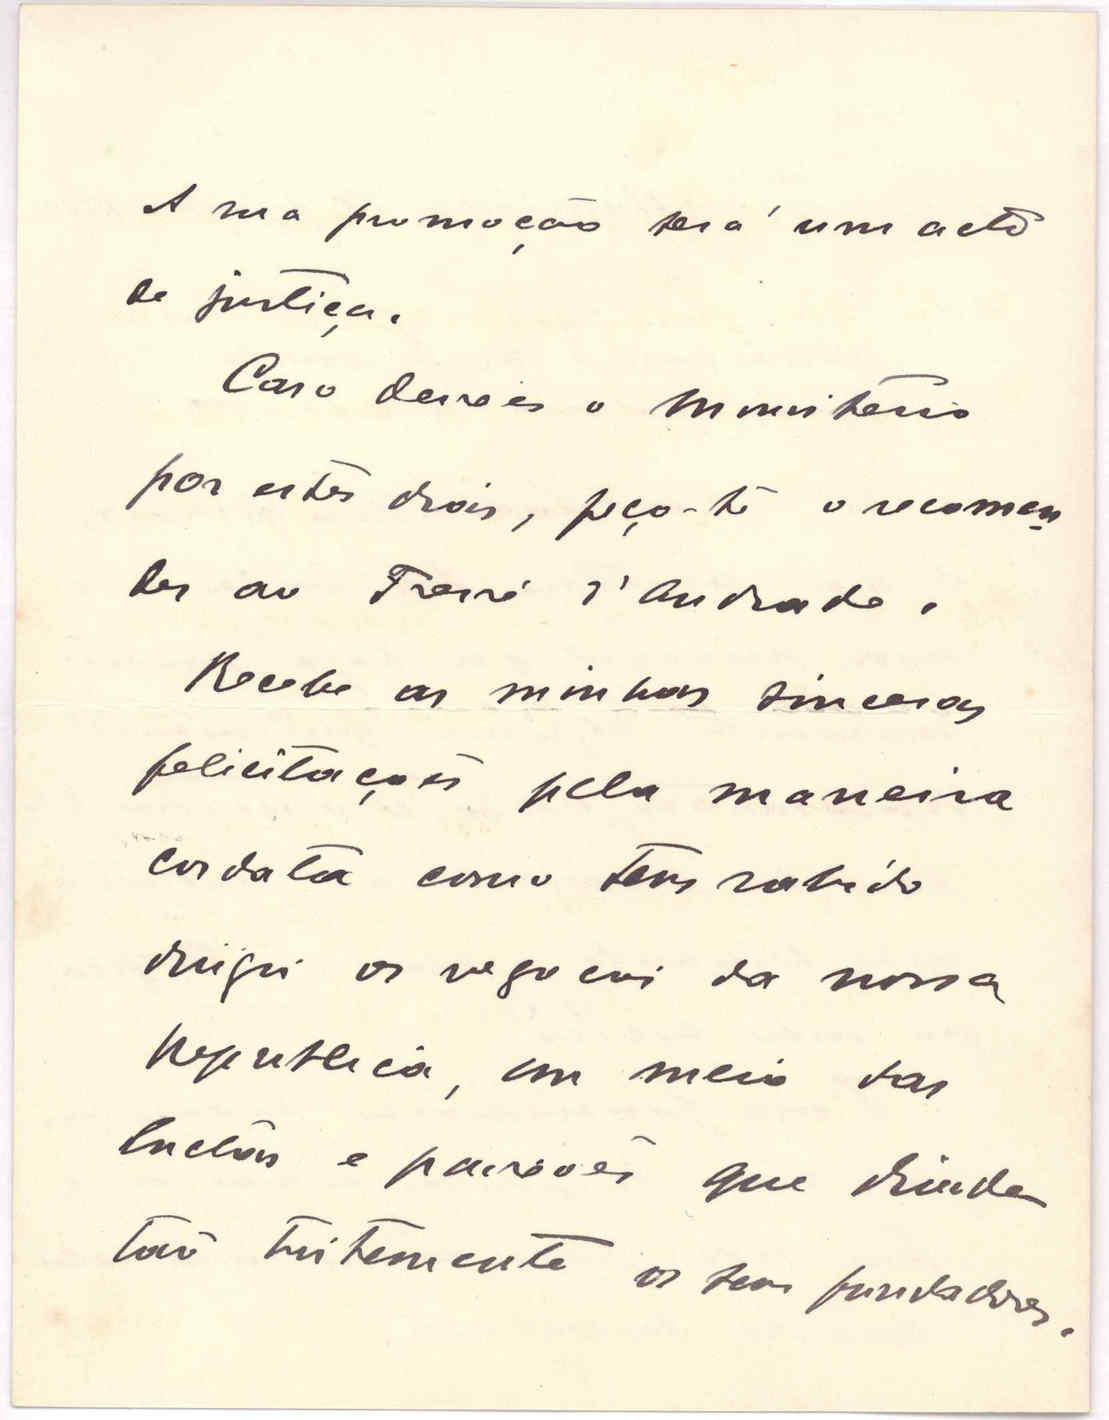 A sua promoção será um acto
de justiça.
Caso deixes o Ministério
por estes dias, peço-te o recomen
des ao Freire d'Andrade.
Recebe as minhas sinceras
felicitações pela maneira
cordata como tens sabido
dirigir os negocios da nossa
Republica, em meio das
luctas e paixões que dividem
tão tristemente os seus fundadores.